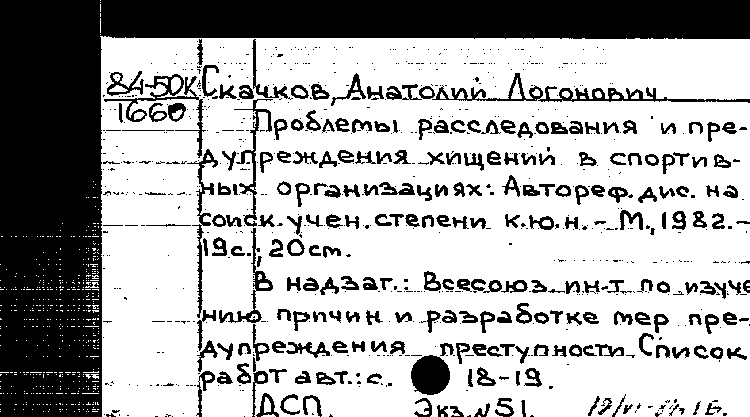 84-50К Скачков, Анатолий Логонович.
1660
Проблемы расследования и пре-
дупреждения хищений в спортив-
ных организациях: Автореф. дис. на
соиск. учен. степени к.ю.н. - М., 1982. -
19с.; 20см.
В надзаг.: Всесоюз. ин-т по изуче
нию причин и разработке мер пре-
дупреждения преступности. Список
работ авт.: с. 18-19.
ДСП. Экз. № 51.